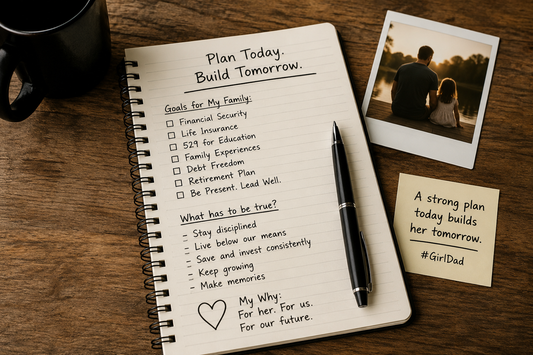 Plan Today.
Build Tomorrow.
Goals for My Family:
Financial Security
Life Insurance
529 for Education
Family Experiences
Debt Freedom
Retirement Plan
Be Present. Lead Well.
What has to be true?
- Stay disciplined
- Live below our means
- Save and invest consistently
- Keep growing
- Make memories
My Why:
For her. For us.
For our future.
A strong plan
today builds
her tomorrow.
#GirlDad